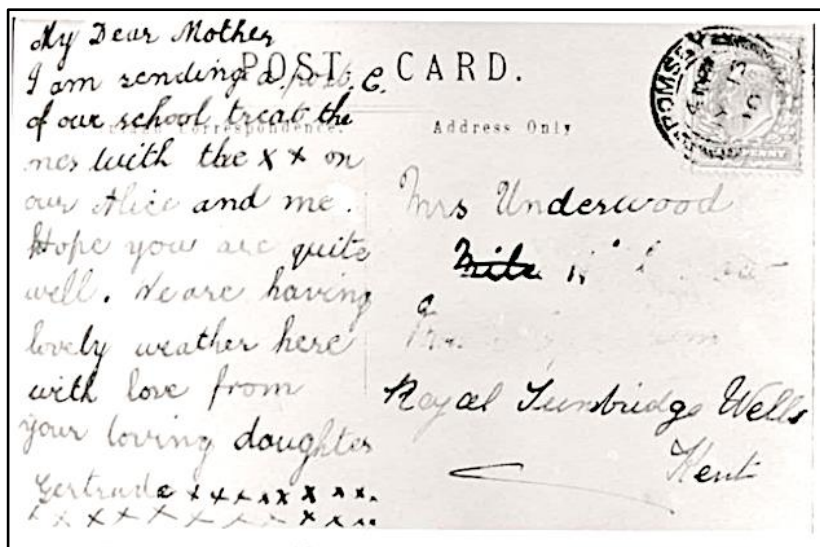 My Dear Mother
I am sending a post. C.
of our school treat the
nes with the x x on
our Alice and me.
Hope you are quite
well. We are having
lovely weather here
with love from
your loving daughter
Gertrude x x x x x x x x.
x x x x x x x x x x x.
POST CARD.
Correspondence.
Address Only
Mrs Underwood
Royal Tunbridge Wells
Kent
ROMSEY